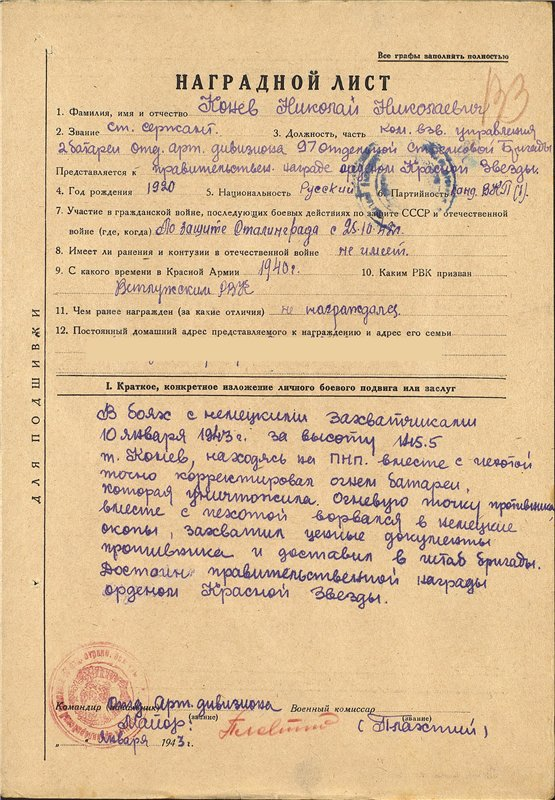 Все графы заполнять полностью
133
НАГРАДНОЙ ЛИСТ
1. Фамилия, имя и отчество Конев Николай Николаевич
2. Звание ст. сержант. 3. Должность, часть ком. взв. управления
2 батареи отд. арт. дивизиона 97 отдельной стрелковой бригады
Представляется к правительствен. награде орденом Красной Звезды.
4. Год рождения 1920 5. Национальность Русский 6. Партийность канд. ВКП(б).
7. Участие в гражданской войне, последующих боевых действиях по защите СССР и отечественной
войне (где, когда) По защите Сталинграда с 25.10.42г.
8. Имеет ли ранения и контузии в отечественной войне не имеет.
9. С какого времени в Красной Армии 1940г. 10. Каким РВК призван
Ветлужским РВК
11. Чем ранее награжден (за какие отличия) не награждался
12. Постоянный домашний адрес представляемого к награждению и адрес его семьи
ДЛЯ ПОДШИВКИ
I. Краткое, конкретное изложение личного боевого подвига или заслуг
В боях с немецкими захватчиками
10 января 1943г. за высоту 145.5
т. Конев, находясь на ПНП. вместе с пехотой
точно корректировал огнем батареи,
которая уничтожила. Огневую точку противника
вместе с пехотой ворвался в немецкие
окопы, захватил ценные документы
противника и доставил в штаб бригады.
Достоин правительственной награды
орденом Красной Звезды.
Командир (начальник) Отд. Арт. дивизиона Военный комиссар
Майор. (звание) (звание)
(Плахтий)
„ “ Января 1943 г.